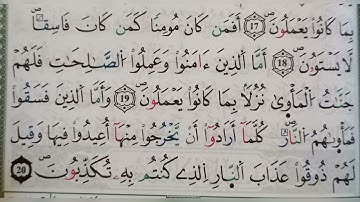 بِمَا كَانُوا۟ يَعْمَلُونَۖ ۝17 أَفَمَن كَانَ مُومِنًا كَمَن كَانَ فَاسِقًاۖ
لَّا يَسْتَوُۥنَۖ ۝18 أَمَّا اَ۬لذِينَ ءَامَنُوا۟ وَعَمِلُوا۟ اُ۬لصَّٰلِحَٰتِ فَلَهُمْ
جَنَّٰتُ اُ۬لْمَأْو۪ىٰ نُزُلَۢا بِمَا كَانُوا۟ يَعْمَلُونَۖ ۝19 وَأَمَّا اَ۬لذِينَ فَسَقُوا۟
فَمَأْو۪ىٰهُمُ اُ۬لنَّارُۖ كُلَّمَا أَرَادُوا۟ أَنْ يَّخْرُجُوا۟ مِنْهَا أُعِيدُوا۟ فِيهَا وَقِيلَ
لَهُمْ ذُوقُوا۟ عَذَابَ اَ۬لنّ۪ارِ اِ۬لذِے كُنتُم بِهِۦ تُكَذِّبُونَۖ ۝20